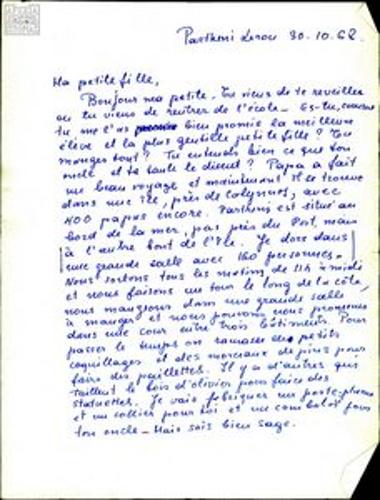 Parthéni Leros 30.10.68.
Ma petite fille,
Bonjour ma petite. Tu viens de te reveiller
ou tu viens de rentrer de l'école. Es-tu, comme
tu me l'as bien promis la meilleure
élève et la plus gentille petite fille ? Tu
manges tout ? Tu entends bien ce que ton
oncle et ta tante te disent ? Papa a fait
un beau voyage et maintenant il se trouve
dans une île, près de Calymnos, avec
400 papas encore. Parthéni est situé au
bord de la mer, pas près du Port, mais
à l'autre bout de l'île. Je dors dans
une grande salle avec 160 personnes.
Nous sortons tous les matins de 11h à midi
et nous faisons un tour le long de la côte,
nous mangeons dans une grande salle
à manger et nous pouvons nous promener
dans une cour entre trois bâtiments. Pour
passer le temps on ramasse des petits
coquillages et des morceaux de pins pour
faire des paillettes. Il y a d'autres qui
taillent le bois d'olivier pour faire des
statuettes. Je vais fabriquer un porte-plume
et un collier pour toi et un comboloï pour
ton oncle. Mais sois bien sage.